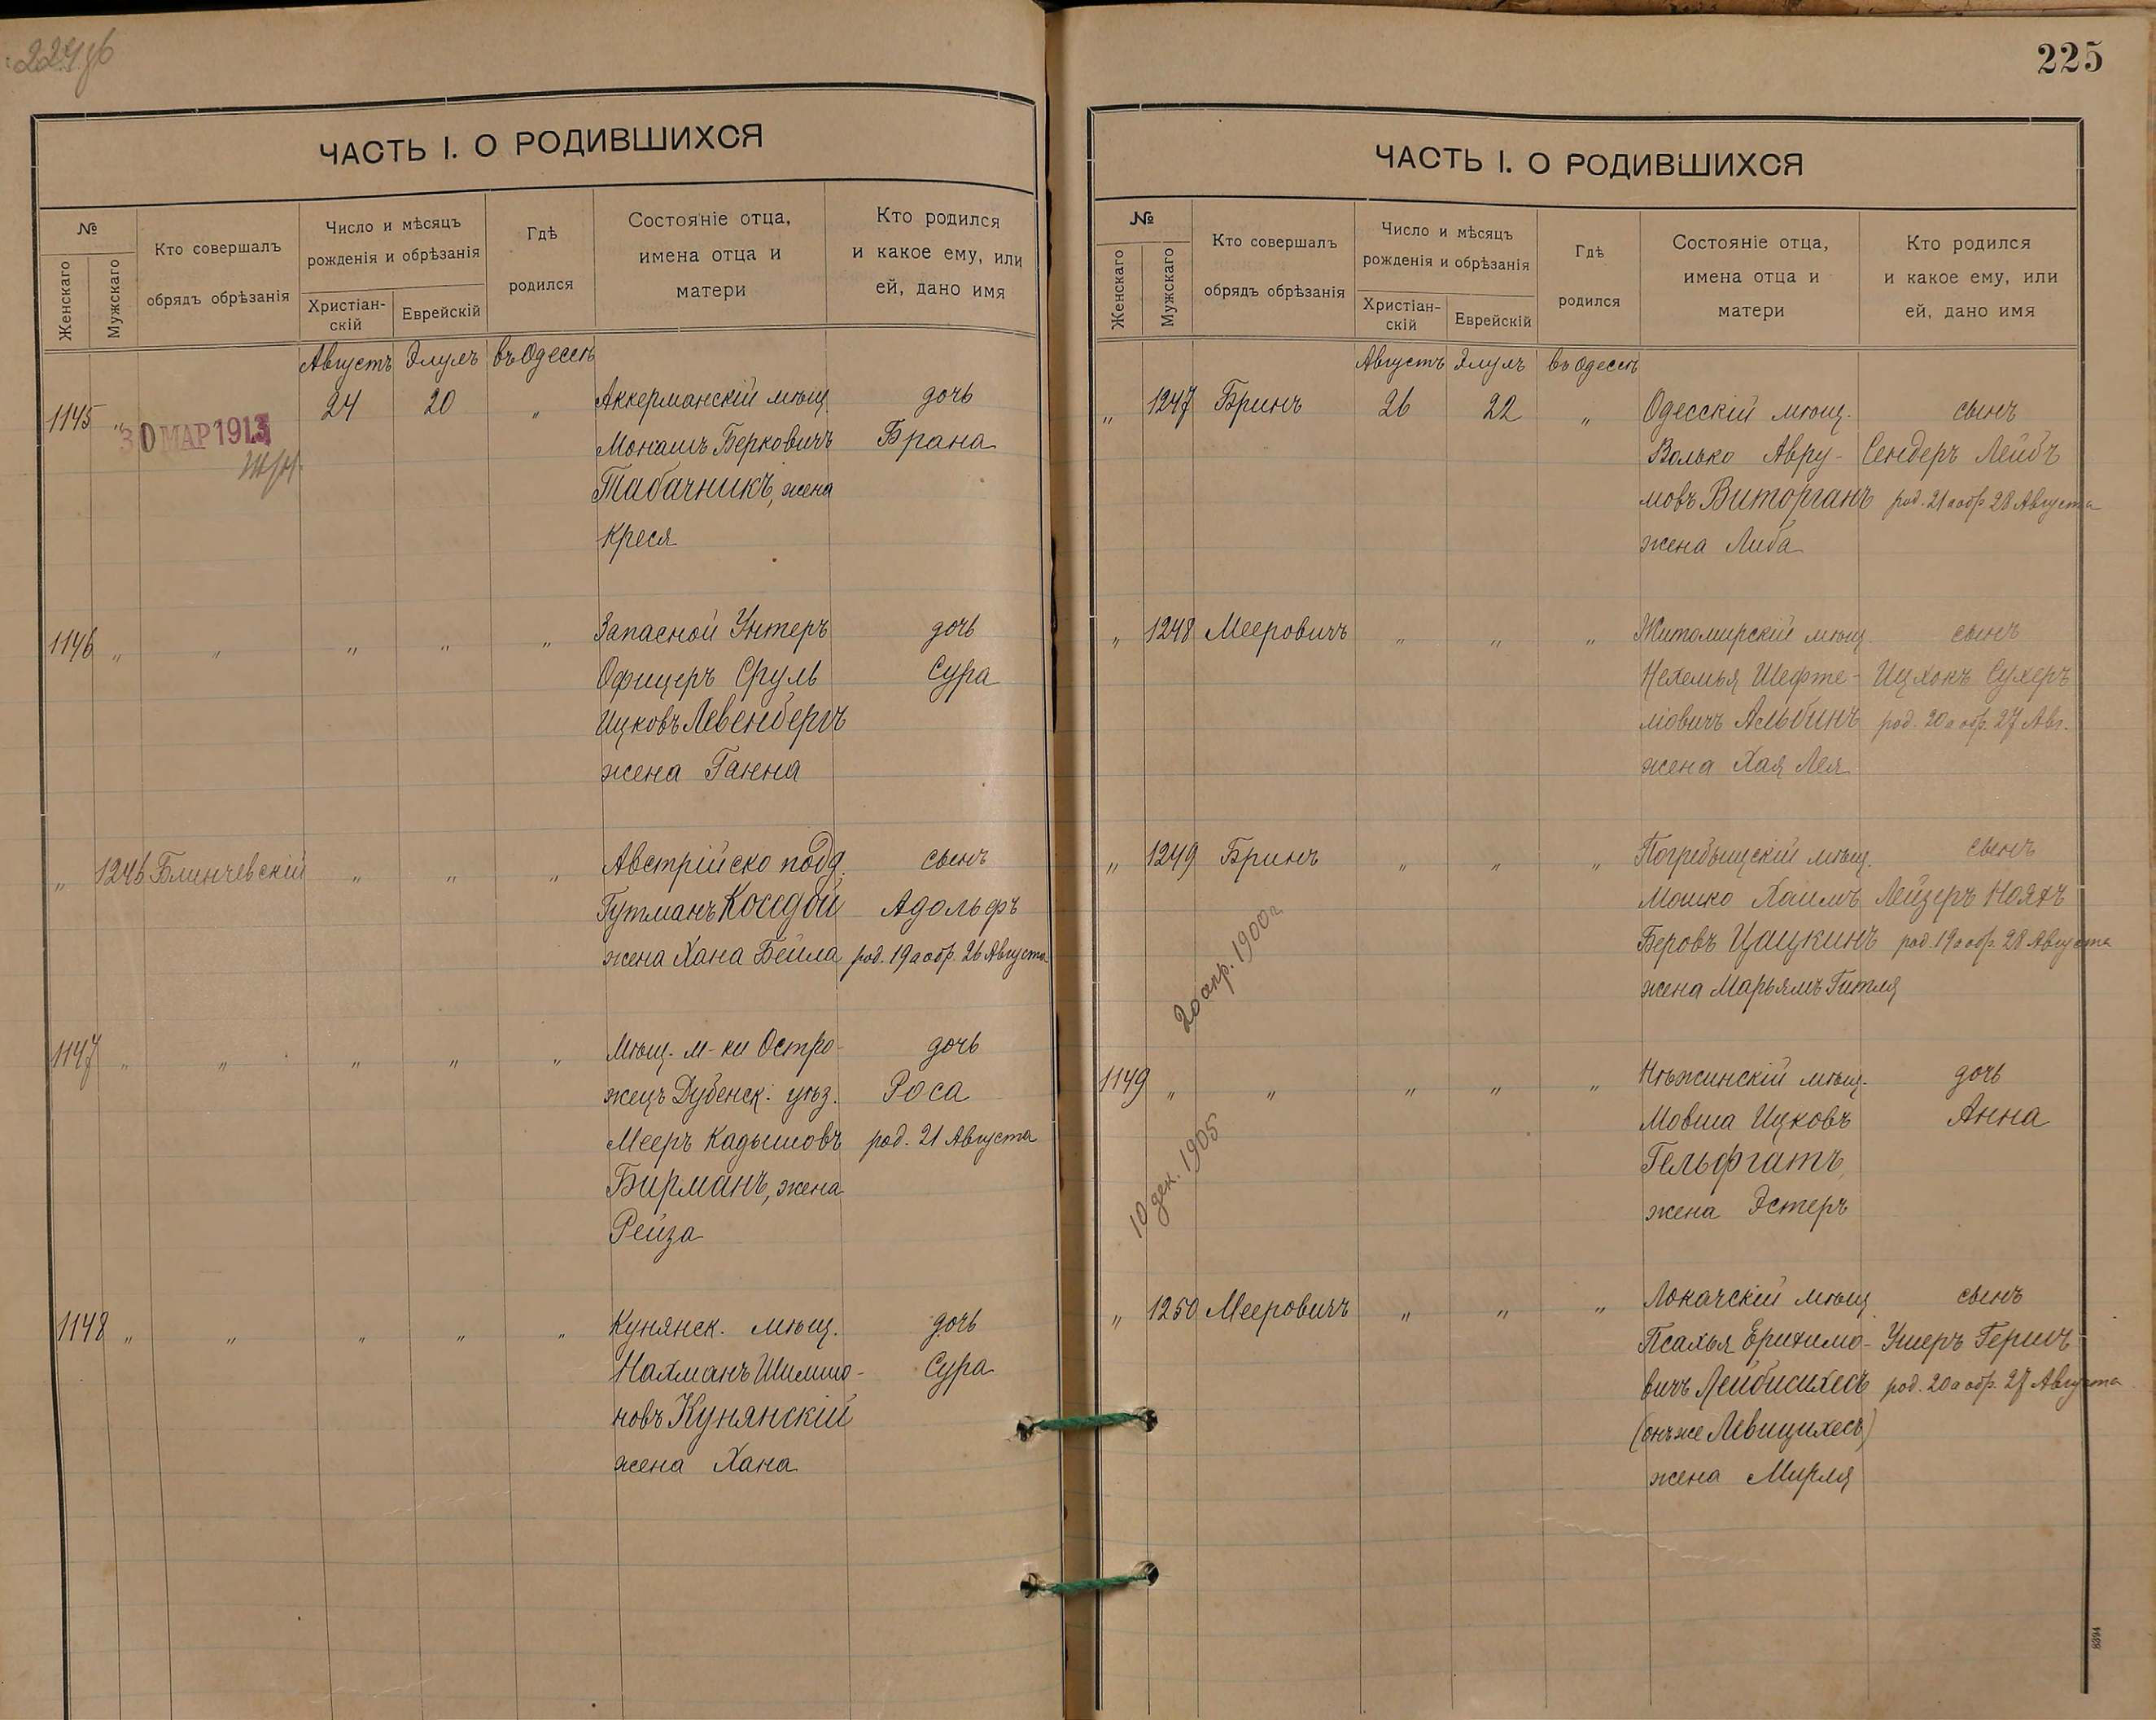 224об
ЧАСТЬ I. О РОДИВШИХСЯ
№
Женскаго
Мужскаго
Кто совершалъ
обрядъ обрѣзанія
Число и мѣсяцъ
рожденія и обрѣзанія
Христіан-
скій
Еврейскій
Гдѣ
родился
Состояніе отца,
имена отца и
матери
Кто родился
и какое ему, или
ей, дано имя
Августъ Элулъ въ Одессѣ
1145 „ 24 20 „ Аккерманскій мѣщ. дочь
30 МАР 1913
Монашъ Берковичъ Брана
Табачникъ, жена
Креся
1146 „ „ „ „ „ Запасной Унтеръ дочь
Офицеръ Сруль Сура
Ицковъ Левенбергъ
жена Ганна
„ 1246 Блинчевскій „ „ „ Австрійско подд. сынъ
Гутманъ Коседой Адольфъ
жена Хана Бейла род. 19 а обр. 26 Августа
1147 „ „ „ „ „ Мѣщ. м-ки Остро- дочь
жецъ Дубенск. уѣз. Роса
Мееръ Кадышовъ род. 21 Августа
Бирманъ, жена
Рейза
1148 „ „ „ „ „ Кунянск. мѣщ. дочь
Нахманъ Шимшо- Сура
новъ Кунянскій
жена Хана
225
ЧАСТЬ I. О РОДИВШИХСЯ
№
Женскаго
Мужскаго
Кто совершалъ
обрядъ обрѣзанія
Число и мѣсяцъ
рожденія и обрѣзанія
Христіан-
скій
Еврейскій
Гдѣ
родился
Состояніе отца,
имена отца и
матери
Кто родился
и какое ему, или
ей, дано имя
Августъ Элулъ въ Одессѣ
„ 1247 Бринъ 26 22 „ Одесскій мѣщ. сынъ
Волько Авру- Сендеръ Лейбъ
мовъ Виторганъ род. 21 а обр 28 Августа
жена Либа
„ 1248 Мееровичъ „ „ „ Житомирскій мѣщ. сынъ
Нехемья Шефте- Ицхокъ Сухеръ
ліовичъ Альбинъ род. 20 а обр. 27 Авг.
жена Хая Лея
„ 1249 Бринъ „ „ „ Погребыщскій мѣщ. сынъ
Мошко Хаимъ Лейзеръ Нояхъ
Беровъ Цацкинъ род. 19 а обр. 28 Августа
жена Марьямъ Гитля
20 апр. 1900 г.
1149 „ „ „ „ „ Нѣжинскій мѣщ. дочь
Мовша Ицковъ Анна
Гельфгатъ,
жена Эстеръ
10 дек. 1905
„ 1250 Мееровичъ „ „ „ Локачскій мѣщ. сынъ
Псахья Ерихимо- Ушеръ Гершъ
вичъ Лейбисихесъ род. 20 а обр. 27 Августа
(онъ же Левицихесъ)
жена Мирля
8394